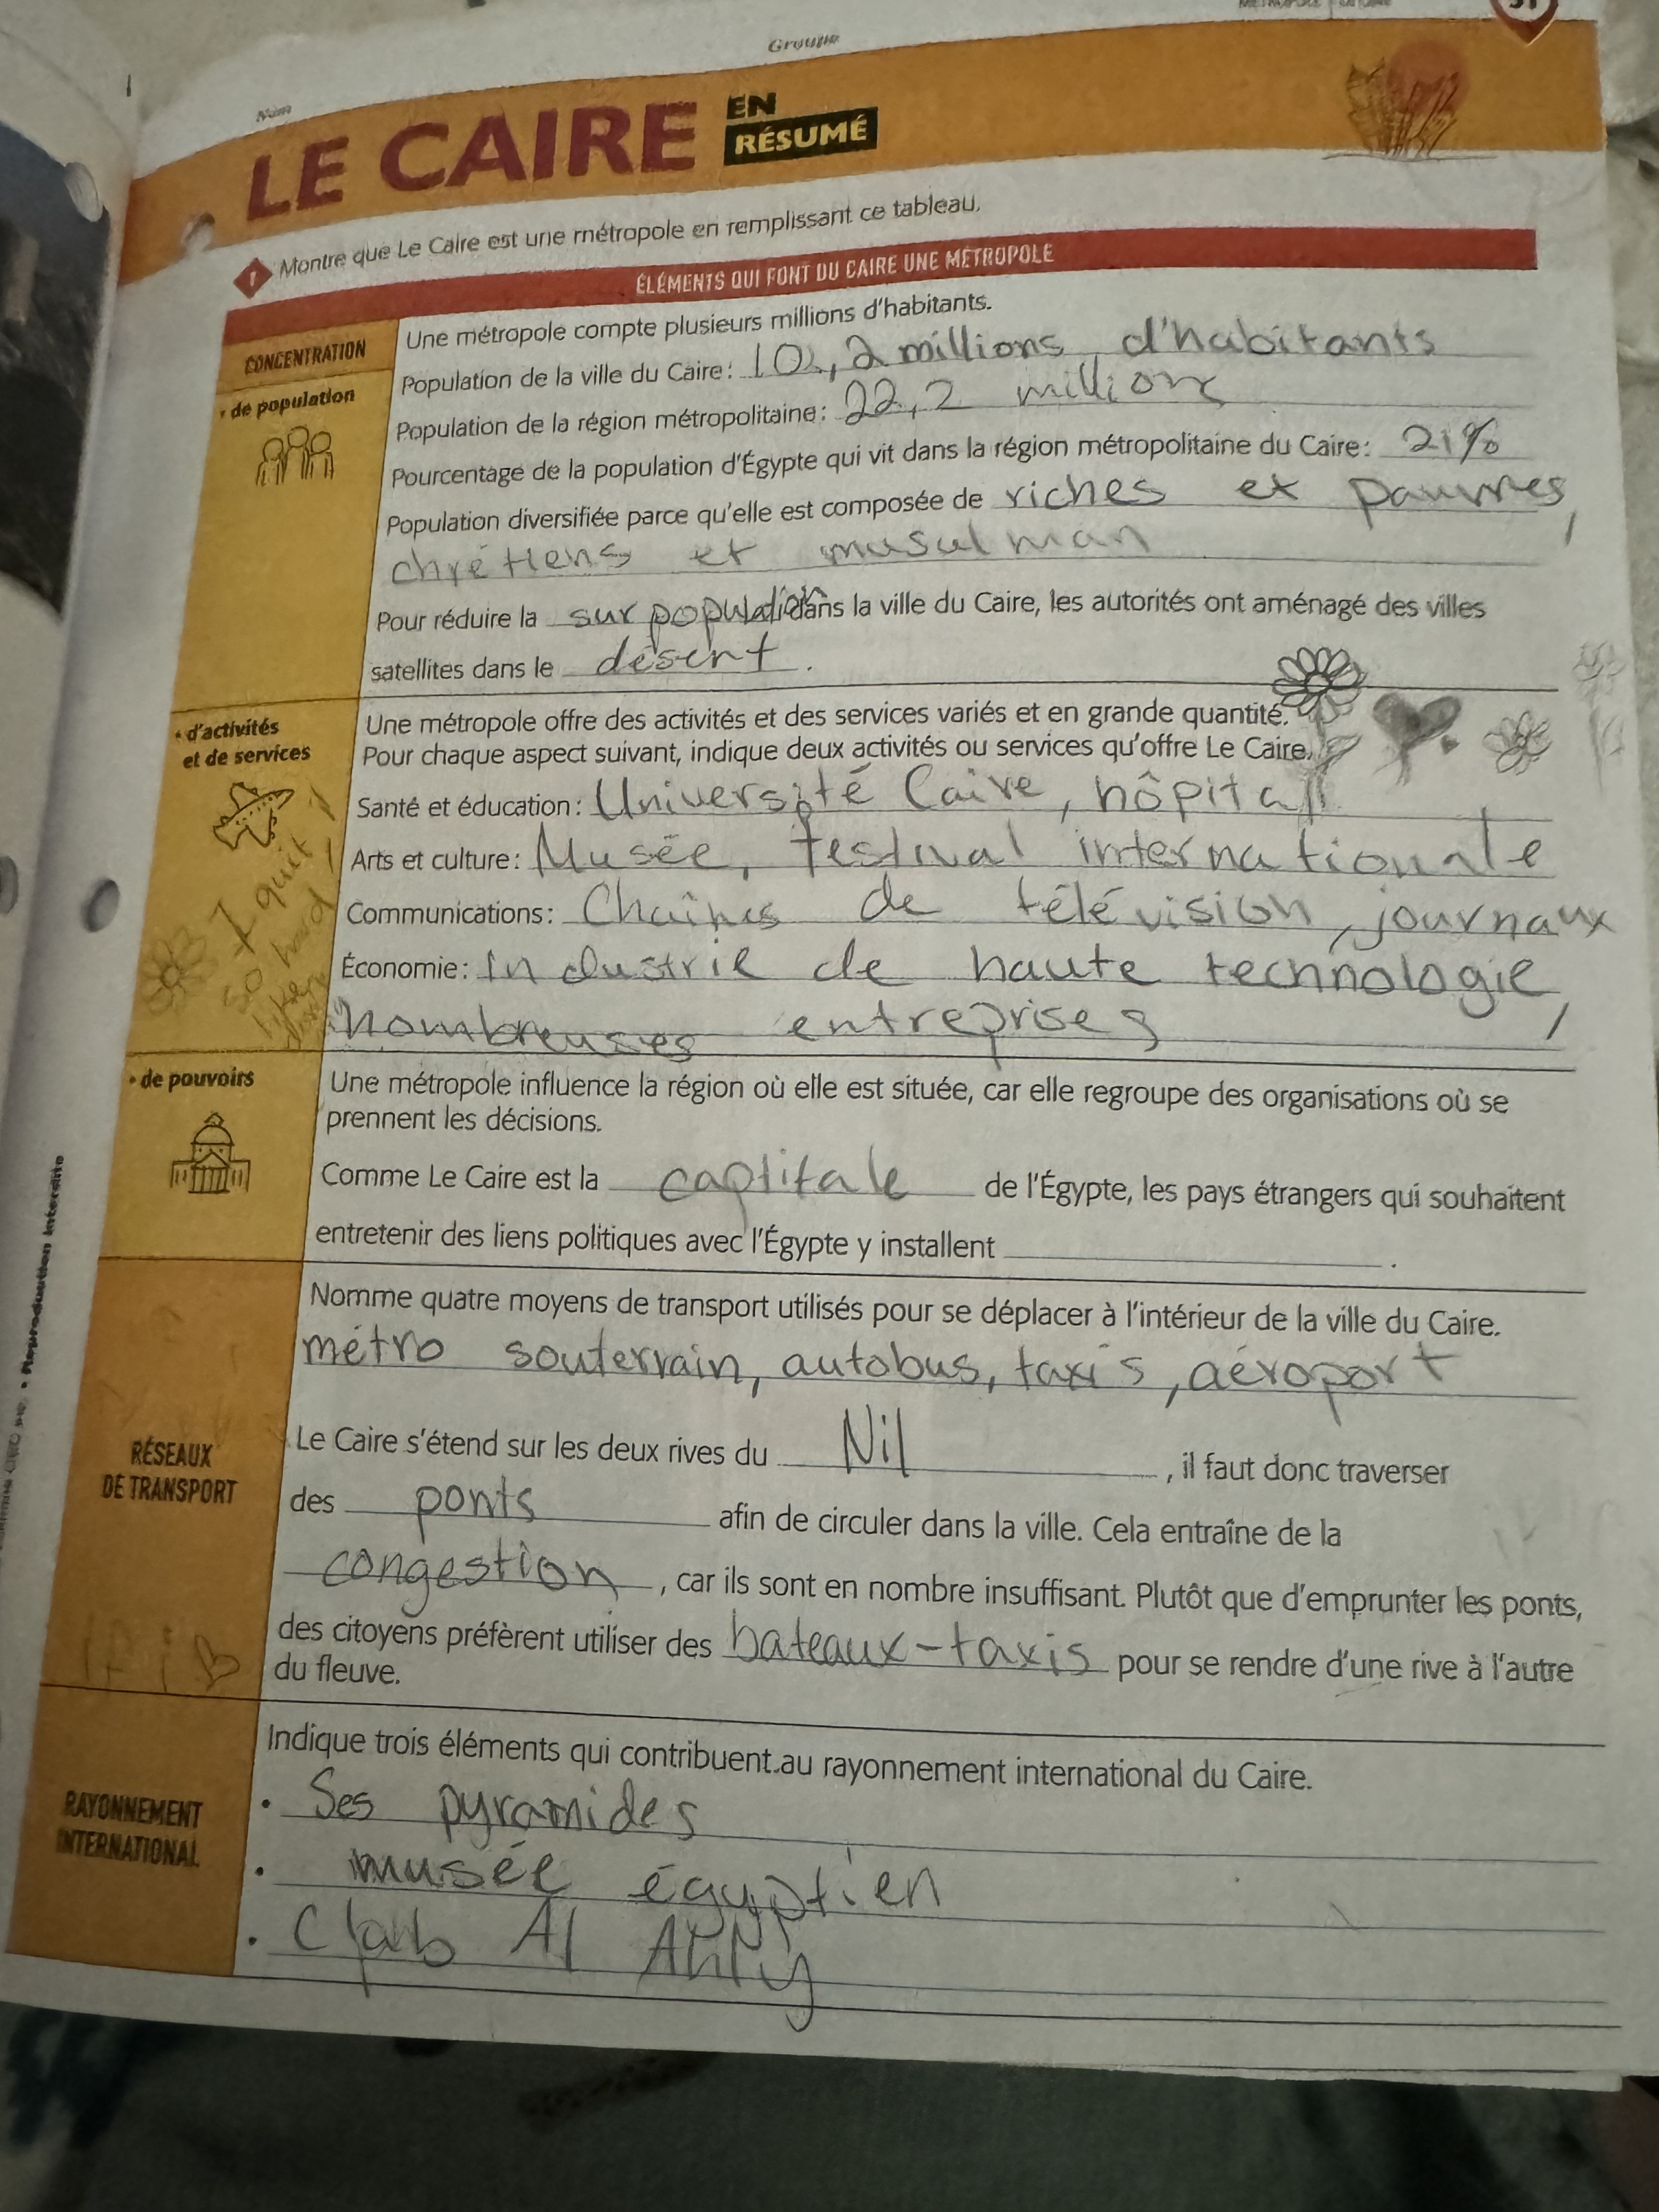 Groupe
Nom
LE CAIRE EN RÉSUMÉ
1 Montre que Le Caire est une métropole en remplissant ce tableau.
ÉLÉMENTS QUI FONT DU CAIRE UNE MÉTROPOLE
CONCENTRATION
• de population
Une métropole compte plusieurs millions d'habitants.
Population de la ville du Caire : 10,2 millions d'habitants
Population de la région métropolitaine : 22,2 millions
Pourcentage de la population d'Égypte qui vit dans la région métropolitaine du Caire : 21%
Population diversifiée parce qu'elle est composée de riches et pauvres,
chrétiens et musulman
Pour réduire la surpopulation dans la ville du Caire, les autorités ont aménagé des villes
satellites dans le désert.
• d'activités
et de services
Une métropole offre des activités et des services variés et en grande quantité.
Pour chaque aspect suivant, indique deux activités ou services qu'offre Le Caire.
Santé et éducation : Université Caire, hôpital
Arts et culture : Musée, festival internationale
Communications : Chaînes de télévision, journaux
Économie : Industrie de haute technologie,
nombreuses entreprises
I quit
so hard
• de pouvoirs
Une métropole influence la région où elle est située, car elle regroupe des organisations où se
prennent les décisions.
Comme Le Caire est la captitale de l'Égypte, les pays étrangers qui souhaitent
entretenir des liens politiques avec l'Égypte y installent .
RÉSEAUX
DE TRANSPORT
Nomme quatre moyens de transport utilisés pour se déplacer à l'intérieur de la ville du Caire.
métro souterrain, autobus, taxis, aéroport
Le Caire s'étend sur les deux rives du Nil , il faut donc traverser
des ponts afin de circuler dans la ville. Cela entraîne de la
congestion , car ils sont en nombre insuffisant. Plutôt que d'emprunter les ponts,
des citoyens préfèrent utiliser des bateaux-taxis pour se rendre d'une rive à l'autre
du fleuve.
RAYONNEMENT
INTERNATIONAL
Indique trois éléments qui contribuent au rayonnement international du Caire.
• Ses pyramides
• musée égyptien
• Club Al Ahly
• Reproduction interdite